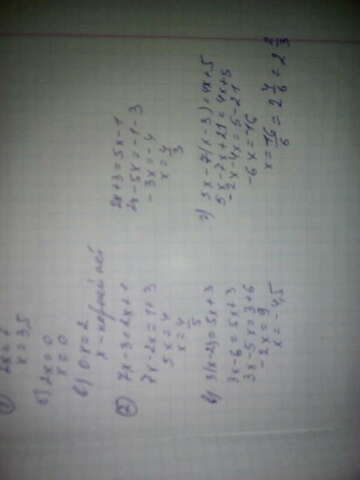 2x=7
x=3,5
б) 2x=0
x=0
в) 0x=2
x-корней нет
②
7x-3=2x+1
7x-2x=1+3
5x=4
x=4/5
2x+3=5x-1
2x-5x=-1-3
-3x=-4
x=4/3
в) 3(x-2)=5x+3
3x-6=5x+3
3x-5x=3+6
-2x=9
x=-4,5
г) 5x-7(x-3)=4x+5
5x-7x+21=4x+5
-2x-4x=5-21
-6x=-16
x=16/6=2 4/6=2 2/3